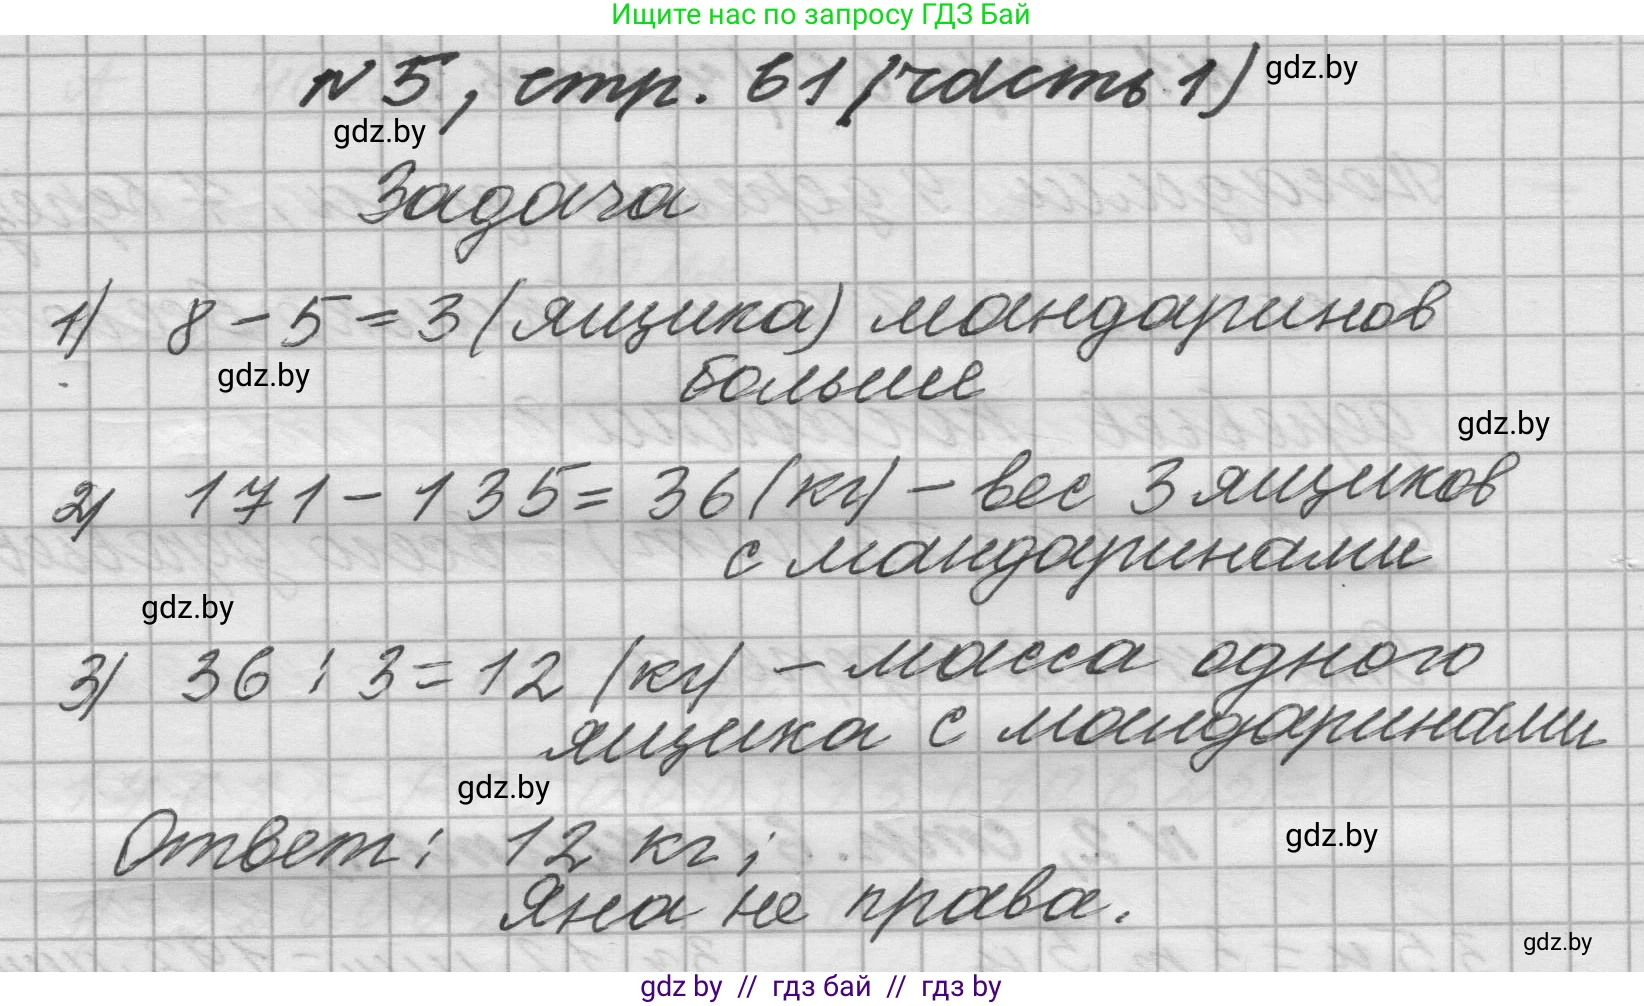 Ищите нас по запросу ГДЗ Бай
N 5, стр. 61 (часть 1)
gdz.by
gdz.by
Задача
1) 8 - 5 = 3 (ящика) мандаринов
больше
gdz.by
gdz.by
2) 171 - 135 = 36 (кг) - вес 3 ящиков
с мандаринами
gdz.by
3) 36 : 3 = 12 (кг) - масса одного
ящика с мандаринами
gdz.by
Ответ: 12 кг;
gdz.by
Яна не права.
gdz.by
gdz by // гдз бай // гдз by